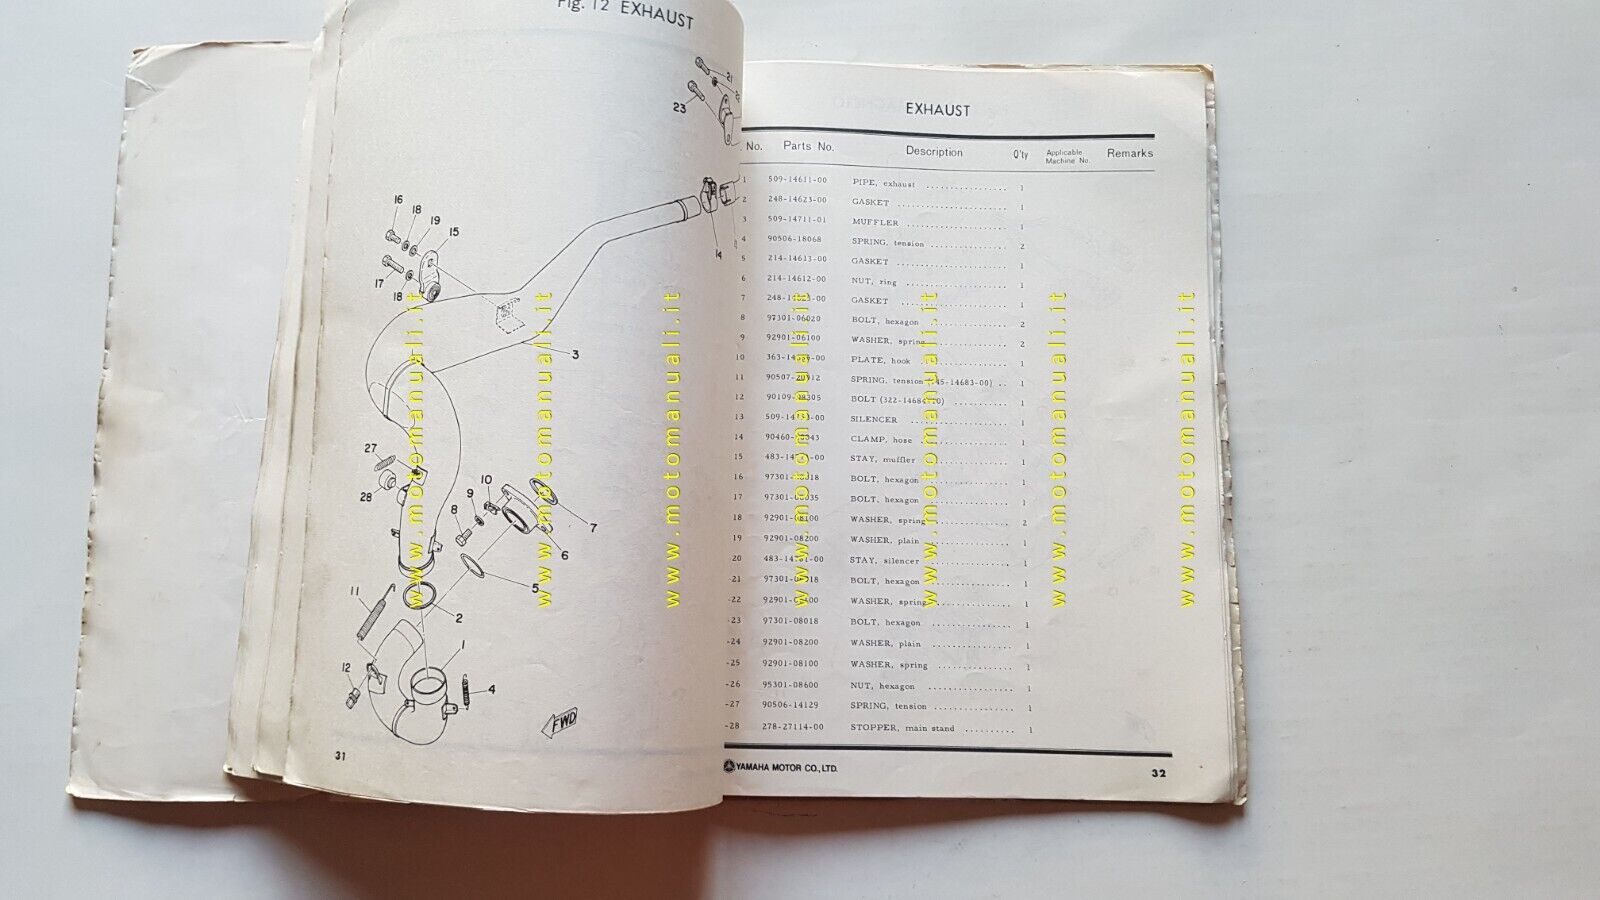 Fig. 12 EXHAUST
21
23
16
18
19
15
17
18
14
3
27
28
10
9
8
7
6
5
11
2
1
12
4
FWD
31
EXHAUST
No. Parts No. Description Q'ty Applicable Machine No. Remarks
1 509-14611-00 PIPE, exhaust 1
2 248-14623-00 GASKET 1
3 509-14711-01 MUFFLER 1
4 90506-18068 SPRING, tension 2
5 214-14613-00 GASKET 1
6 214-14612-00 NUT, ring 1
7 GASKET 1
8 97301-06020 BOLT, hexagon 2
9 92901-06100 WASHER, spring 2
10 PLATE, hook 1
11 SPRING, tension 1
12 BOLT 1
13 SILENCER 1
14 CLAMP, hose 1
15 STAY, muffler 1
16 97301-08018 BOLT, hexagon 1
17 97301-08035 BOLT, hexagon 1
18 92901-08100 WASHER, spring 2
19 92901-08200 WASHER, plain 1
20 STAY, silencer 1
-21 97301-08018 BOLT, hexagon 1
-22 92901-08100 WASHER, spring 1
-23 97301-08018 BOLT, hexagon 1
-24 92901-08200 WASHER, plain 1
-25 92901-08100 WASHER, spring 1
-26 95301-08600 NUT, hexagon 1
-27 90506-14129 SPRING, tension 1
-28 278-27114-00 STOPPER, main stand 1
YAMAHA MOTOR CO., LTD.
32
www.motomanuali.it
www.motomanuali.it
www.motomanuali.it
www.motomanuali.it
www.motomanuali.it
www.motomanuali.it
www.motomanuali.it